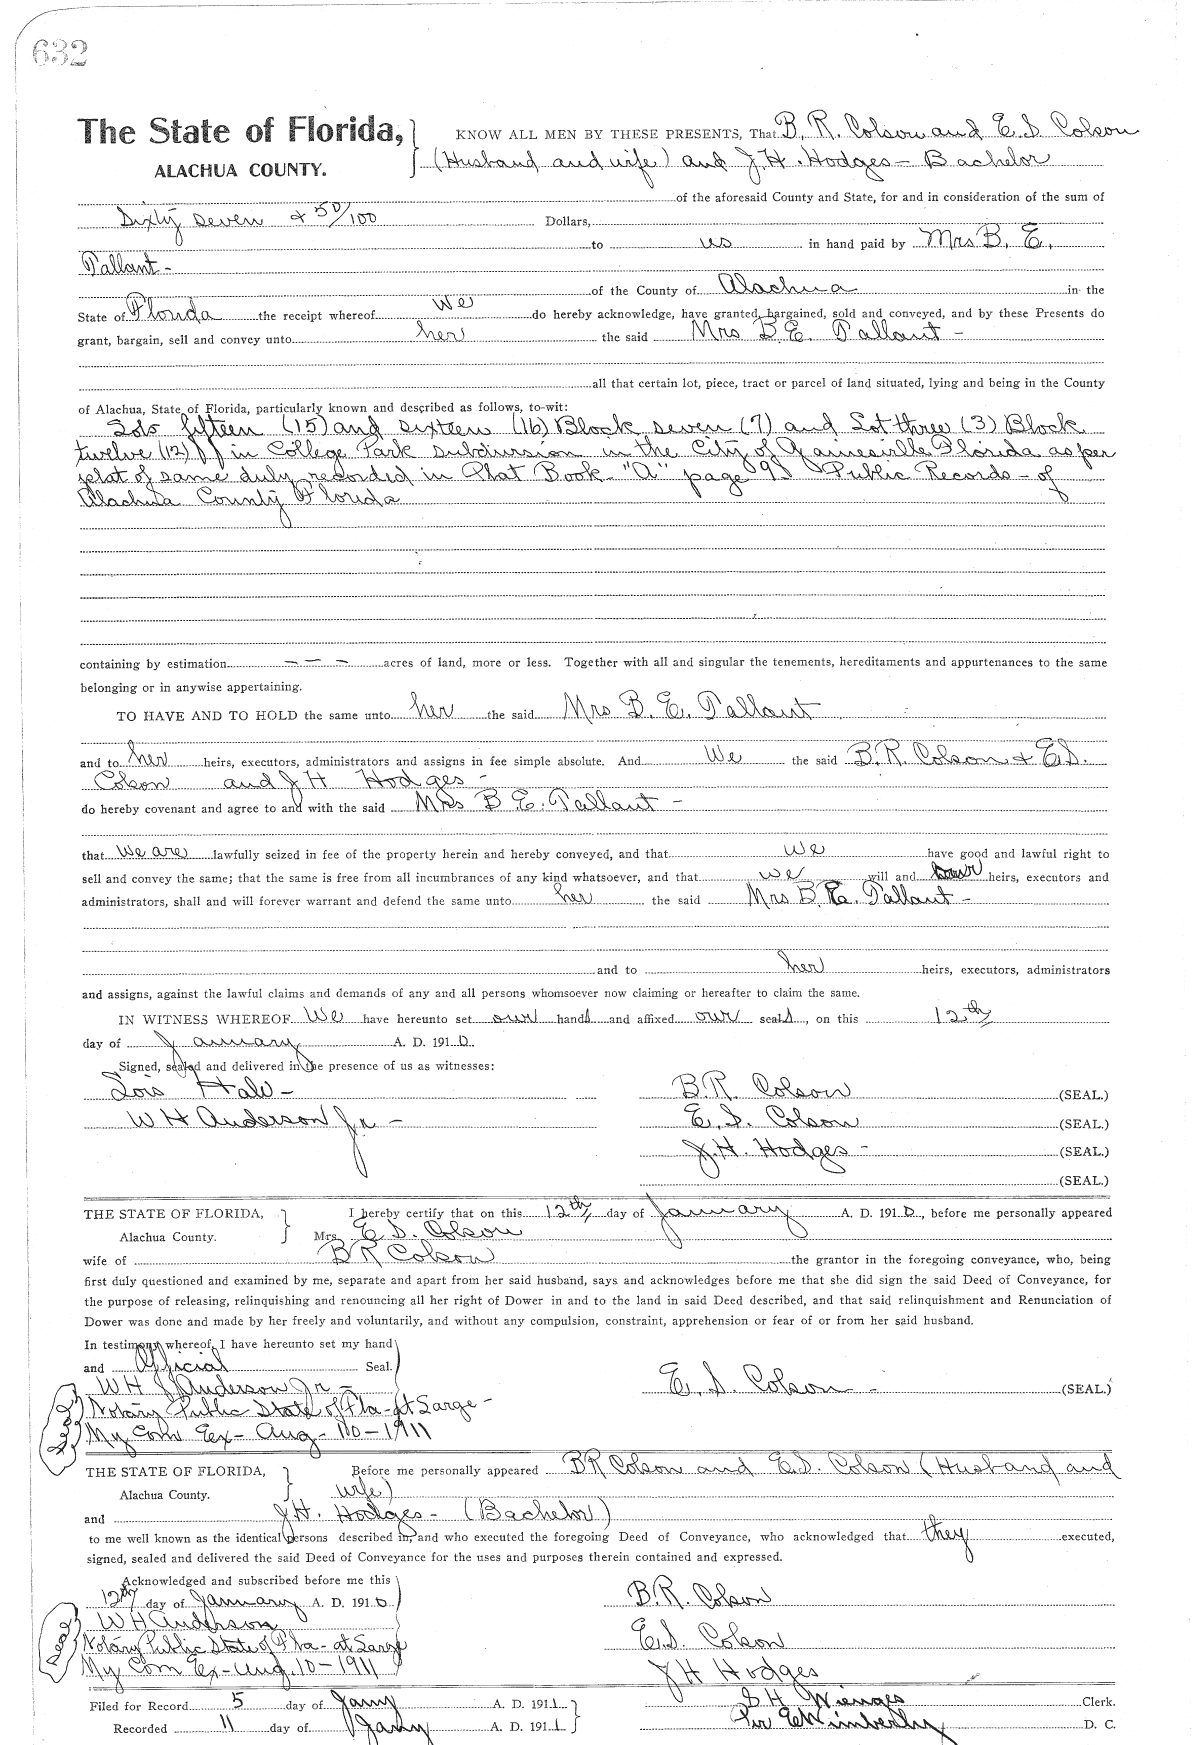 632
The State of Florida, KNOW ALL MEN BY THESE PRESENTS, That B. R. Colson and E. S. Colson
ALACHUA COUNTY. (Husband and wife) and J. H. Hodges - Bachelor
of the aforesaid County and State, for and in consideration of the sum of
Sixty seven & 50/100 Dollars,
to us in hand paid by Mrs B. E.
Tallant -
of the County of Alachua in the
State of Florida the receipt whereof we do hereby acknowledge, have granted, bargained, sold and conveyed, and by these Presents do
grant, bargain, sell and convey unto her the said Mrs B. E. Tallant -
all that certain lot, piece, tract or parcel of land situated, lying and being in the County
of Alachua, State of Florida, particularly known and described as follows, to-wit:
Lots fifteen (15) and sixteen (16) Block seven (7) and Lot three (3) Block
twelve (12) in College Park subdivision in the City of Gainesville Florida as per
plat of same duly recorded in Plat Book "A" page 9 Public Records - of
Alachua County Florida
containing by estimation - - - acres of land, more or less. Together with all and singular the tenements, hereditaments and appurtenances to the same
belonging or in anywise appertaining.
TO HAVE AND TO HOLD the same unto her the said Mrs B. E. Tallant
and to her heirs, executors, administrators and assigns in fee simple absolute. And We the said B. R. Colson & E. S.
Colson and J H Hodges -
do hereby covenant and agree to and with the said Mrs B E. Tallant -
that we are lawfully seized in fee of the property herein and hereby conveyed, and that we have good and lawful right to
sell and convey the same; that the same is free from all incumbrances of any kind whatsoever, and that we will and our heirs, executors and
administrators, shall and will forever warrant and defend the same unto her the said Mrs B. E. Tallant -
and to her heirs, executors, administrators
and assigns, against the lawful claims and demands of any and all persons whomsoever now claiming or hereafter to claim the same.
IN WITNESS WHEREOF We have hereunto set our hands and affixed our seals, on this 12th
day of January A. D. 1910.
Signed, sealed and delivered in the presence of us as witnesses:
Lois Hale - B. R. Colson (SEAL.)
W H Anderson Jr - E. S. Colson (SEAL.)
J. H. Hodges - (SEAL.)
(SEAL.)
THE STATE OF FLORIDA, I hereby certify that on this 12th day of January A. D. 1910, before me personally appeared
Alachua County. Mrs. E S. Colson
wife of B R Colson the grantor in the foregoing conveyance, who, being
first duly questioned and examined by me, separate and apart from her said husband, says and acknowledges before me that she did sign the said Deed of Conveyance, for
the purpose of releasing, relinquishing and renouncing all her right of Dower in and to the land in said Deed described, and that said relinquishment and Renunciation of
Dower was done and made by her freely and voluntarily, and without any compulsion, constraint, apprehension or fear of or from her said husband.
In testimony whereof, I have hereunto set my hand
and Official Seal.
W H Anderson Jr - E. S. Colson - (SEAL.)
Notary Public State of Fla - at Large -
Seal My Com Ex - Aug - 10 - 1911
THE STATE OF FLORIDA, Before me personally appeared B R Colson and E. S. Colson (Husband and
Alachua County. wife)
and J. H. Hodges - (Bachelor)
to me well known as the identical persons described in, and who executed the foregoing Deed of Conveyance, who acknowledged that they executed,
signed, sealed and delivered the said Deed of Conveyance for the uses and purposes therein contained and expressed.
Acknowledged and subscribed before me this
12th day of January A. D. 1910 B. R. Colson
W H Anderson
Seal Notary Public State of Fla - at Large E. S. Colson
My Com Ex - Aug. 10 - 1911 J H Hodges
Filed for Record 5 day of Jany A. D. 1911 S H Wienges Clerk.
Recorded 11 day of Jany A. D. 1911 Per E Wimberly D. C.